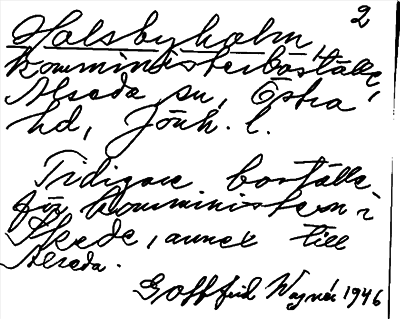 2
Halsbyholm,
komministerboställe,
Alseda sn, Östra
hd, Jönk. l.
Tidigare boställe
för komministern i
Skede, annex till
Alseda.
Gottfrid Wagnér 1946